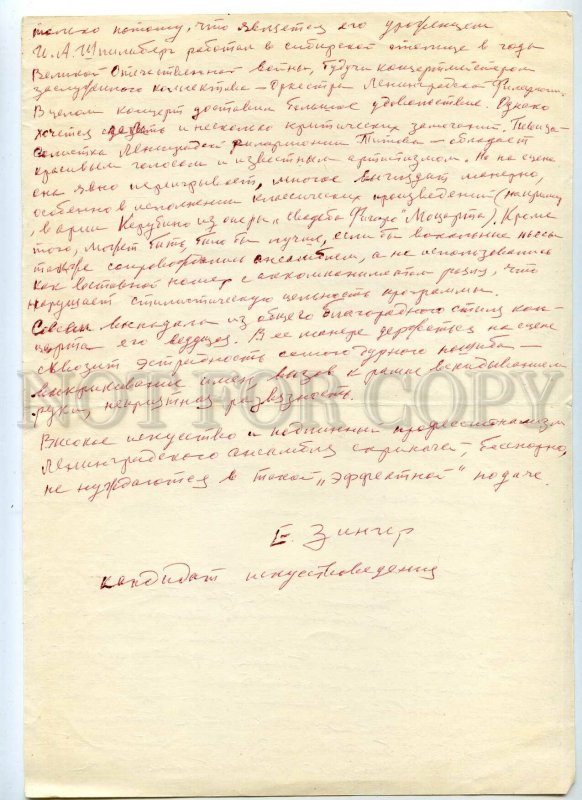 только потому, что является его уроженцем
И. А. Шпильберг работал в сибирской столице в годы
Великой Отечественной войны, будучи концертмейстером
заслуженного коллектива – Оркестра Ленинградской Филармонии.
В целом концерт доставил большое удовольствие. Однако
хочется и несколько критических замечаний. Певица-
солистка Ленинградской филармонии Титова – обладает
красивым голосом и известным артистизмом. Но на сцене
она явно переигрывает, многое выглядит манерно,
особенно в исполнении классических произведений (например
, в арии Керубино из оперы „Свадьба Фигаро" Моцарта). Кроме
того, может быть, было бы лучше, если бы вокальные пьесы
также сопровождались ансамблем, а не использовались
как вставной номер с аккомпаниментом рояля, что
нарушает стилистическую цельность программы.
Совсем выпадала из общего благородного стиля кон-
церта его ведущая. В ее манере держаться на сцене
сквозит эстрадность самого дурного пошиба –
выкрикивание имен, вызов к рампе вскидыванием
руки, неприятная развязность.
Высокое искусство и подлинный профессионализм
Ленинградского ансамбля скрипачей, бесспорно,
не нуждаются в такой „эффектной" подаче.
Е. Зингер
кандидат искусствоведения
NOT FOR COPY